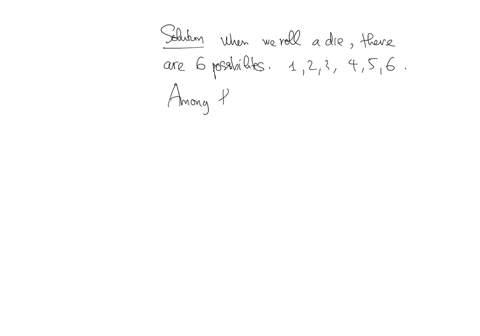 Solution When we roll a die, there
are 6 possibilites. 1, 2, 3, 4, 5, 6.
Among t